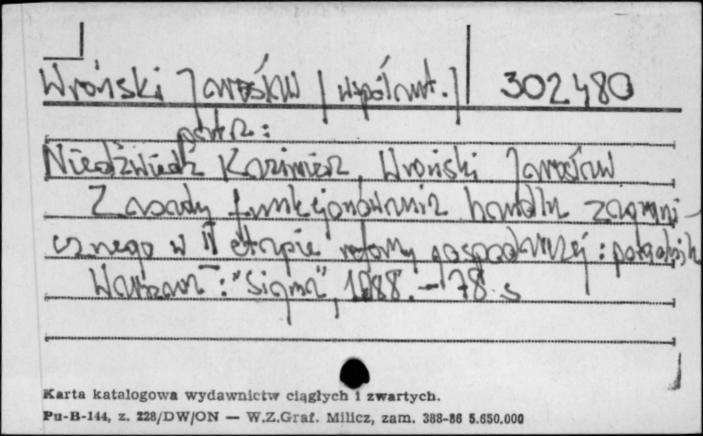 Wroński Jarosław /współaut./ 302480
patrz:
Niedźwiedź Kazimierz, Wroński Jarosław
Zasady funkcjonowania handlu zagrani-
cznego w II etapie reformy gospodarczej : poradnik
Warszawa : "Sigma", 1988. - 78 s
Karta katalogowa wydawnictw ciągłych i zwartych.
Pu-B-144, z. 228/DW/ON — W.Z.Graf. Milicz, zam. 388-86 5.650.000